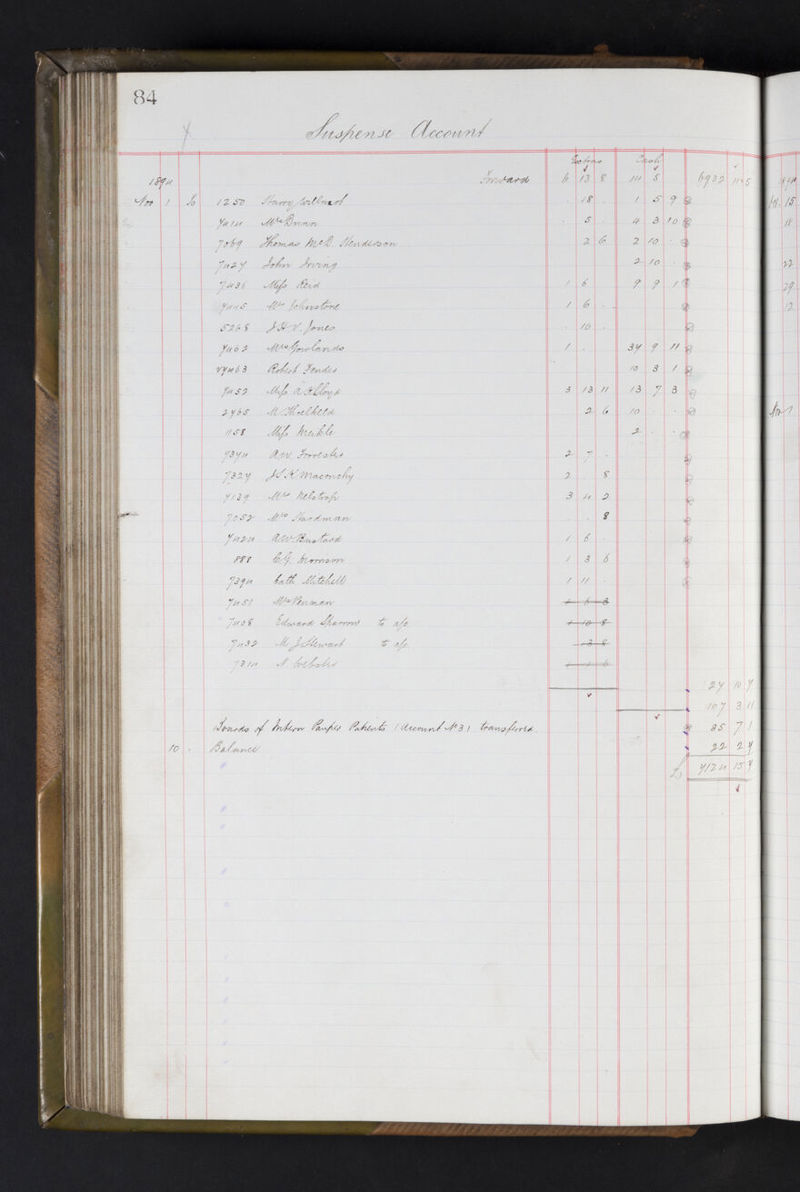 84
Suspense Account
Extras Cash
1894 Forward 6 13 8 111 5 6932 11 5
Nov 1 To 1250 Harry 18 1 5 9
7414 Mrs Dunn 5 4 3 10
7069 Thomas McD. Henderson 2 6 2 10
7427 John Irving 2 10
7436 Miss Reid 1 6 9 9 1
7445 Mrs Johnstone 1 6
5268 J. H. V. Jones 10
7462 Mrs Gowlands 1 34 9 11
7463 Robert 10 3 1
7452 Miss Lloyd 3 13 11 13 7 3
2465 2 6 10
1158 Miss Meikle 2
7344 A W Forrester 2 7
7324 Maconchy 2 8
7139 Mrs 3 4 2
7052 Mrs Hardman 8
7424 A W Bustard 1 6
888 C. G. Morrison 1 3 6
7394 Cath. Mitchell 1 11
7451 Mrs Penman
7408 Edward Sharrow to a/c
7432 M J Stewart to a/c
Webster
24 10 7
107 3 11
Boards of Intern Pauper Patients (Account No 3) transferred 35 7 1
10 Balance 22 2 7
£ 7124 15 7